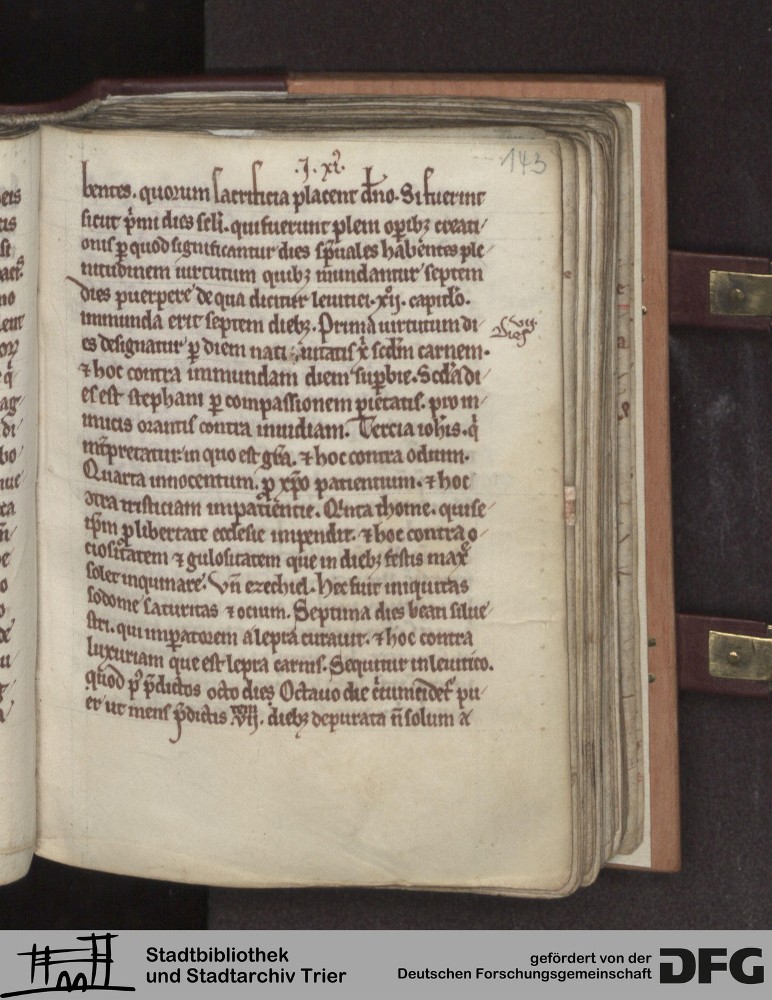 .J. xi.
143
bentes. quorum sacrificia placent dno. Si fuerint
sicut pmi dies scli. qui fuerunt pleni opibꝫ creati
onis p quod significantur dies spuales habentes ple
nitudinem uirtutum quibꝫ mundantur septem
dies puerpere de qua dicitur leuitici. xij. capitlo.
immunda erit septem diebꝫ. Prima uirtutum di
es designatur p diem natiuitatis x scdm carnem.
⁊ hoc contra immundam diem supbie. Scda di
es est stephani p compassionem pietatis. pro ini
micis orantis contra inuidiam. Tercia iohis. q
intpretatur in quo est gra. ⁊ hoc contra odium.
Quarta innocentum. p xpo patientium. ⁊ hoc
ɔtra tristiciam impatientie. Qinta thome. qui se
ipm p libertate ecclesie impendit. ⁊ hoc contra o
ciositatem ⁊ gulositatem que in diebꝫ festis max
solet inquinare. Vn ezechiel. Hec fuit iniquitas
sodome saturitas ⁊ ocium. Septima dies beati silue
stri. qui impatorem a lepra curauit. ⁊ hoc contra
luxuriam que est lepra carnis. Sequitur in leuitico.
quod p pdictos octo dies Octauo die cicumcidet pu
er ut mens pdictis VII. diebꝫ depurata n solum a
vij.
Dies
Stadtbibliothek
und Stadtarchiv Trier
gefördert von der
Deutschen Forschungsgemeinschaft
DFG